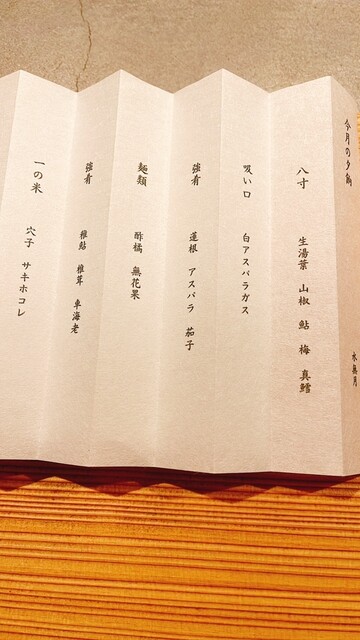 今月の夕餉
水無月
八寸 生湯葉 山椒 鮎 梅 真鱈
吸い口 白アスパラガス
強肴 蓮根 アスパラ 茄子
麺類 酢橘 無花果
強肴 稚鮎 椎茸 車海老
一の米 穴子 サキホコレ